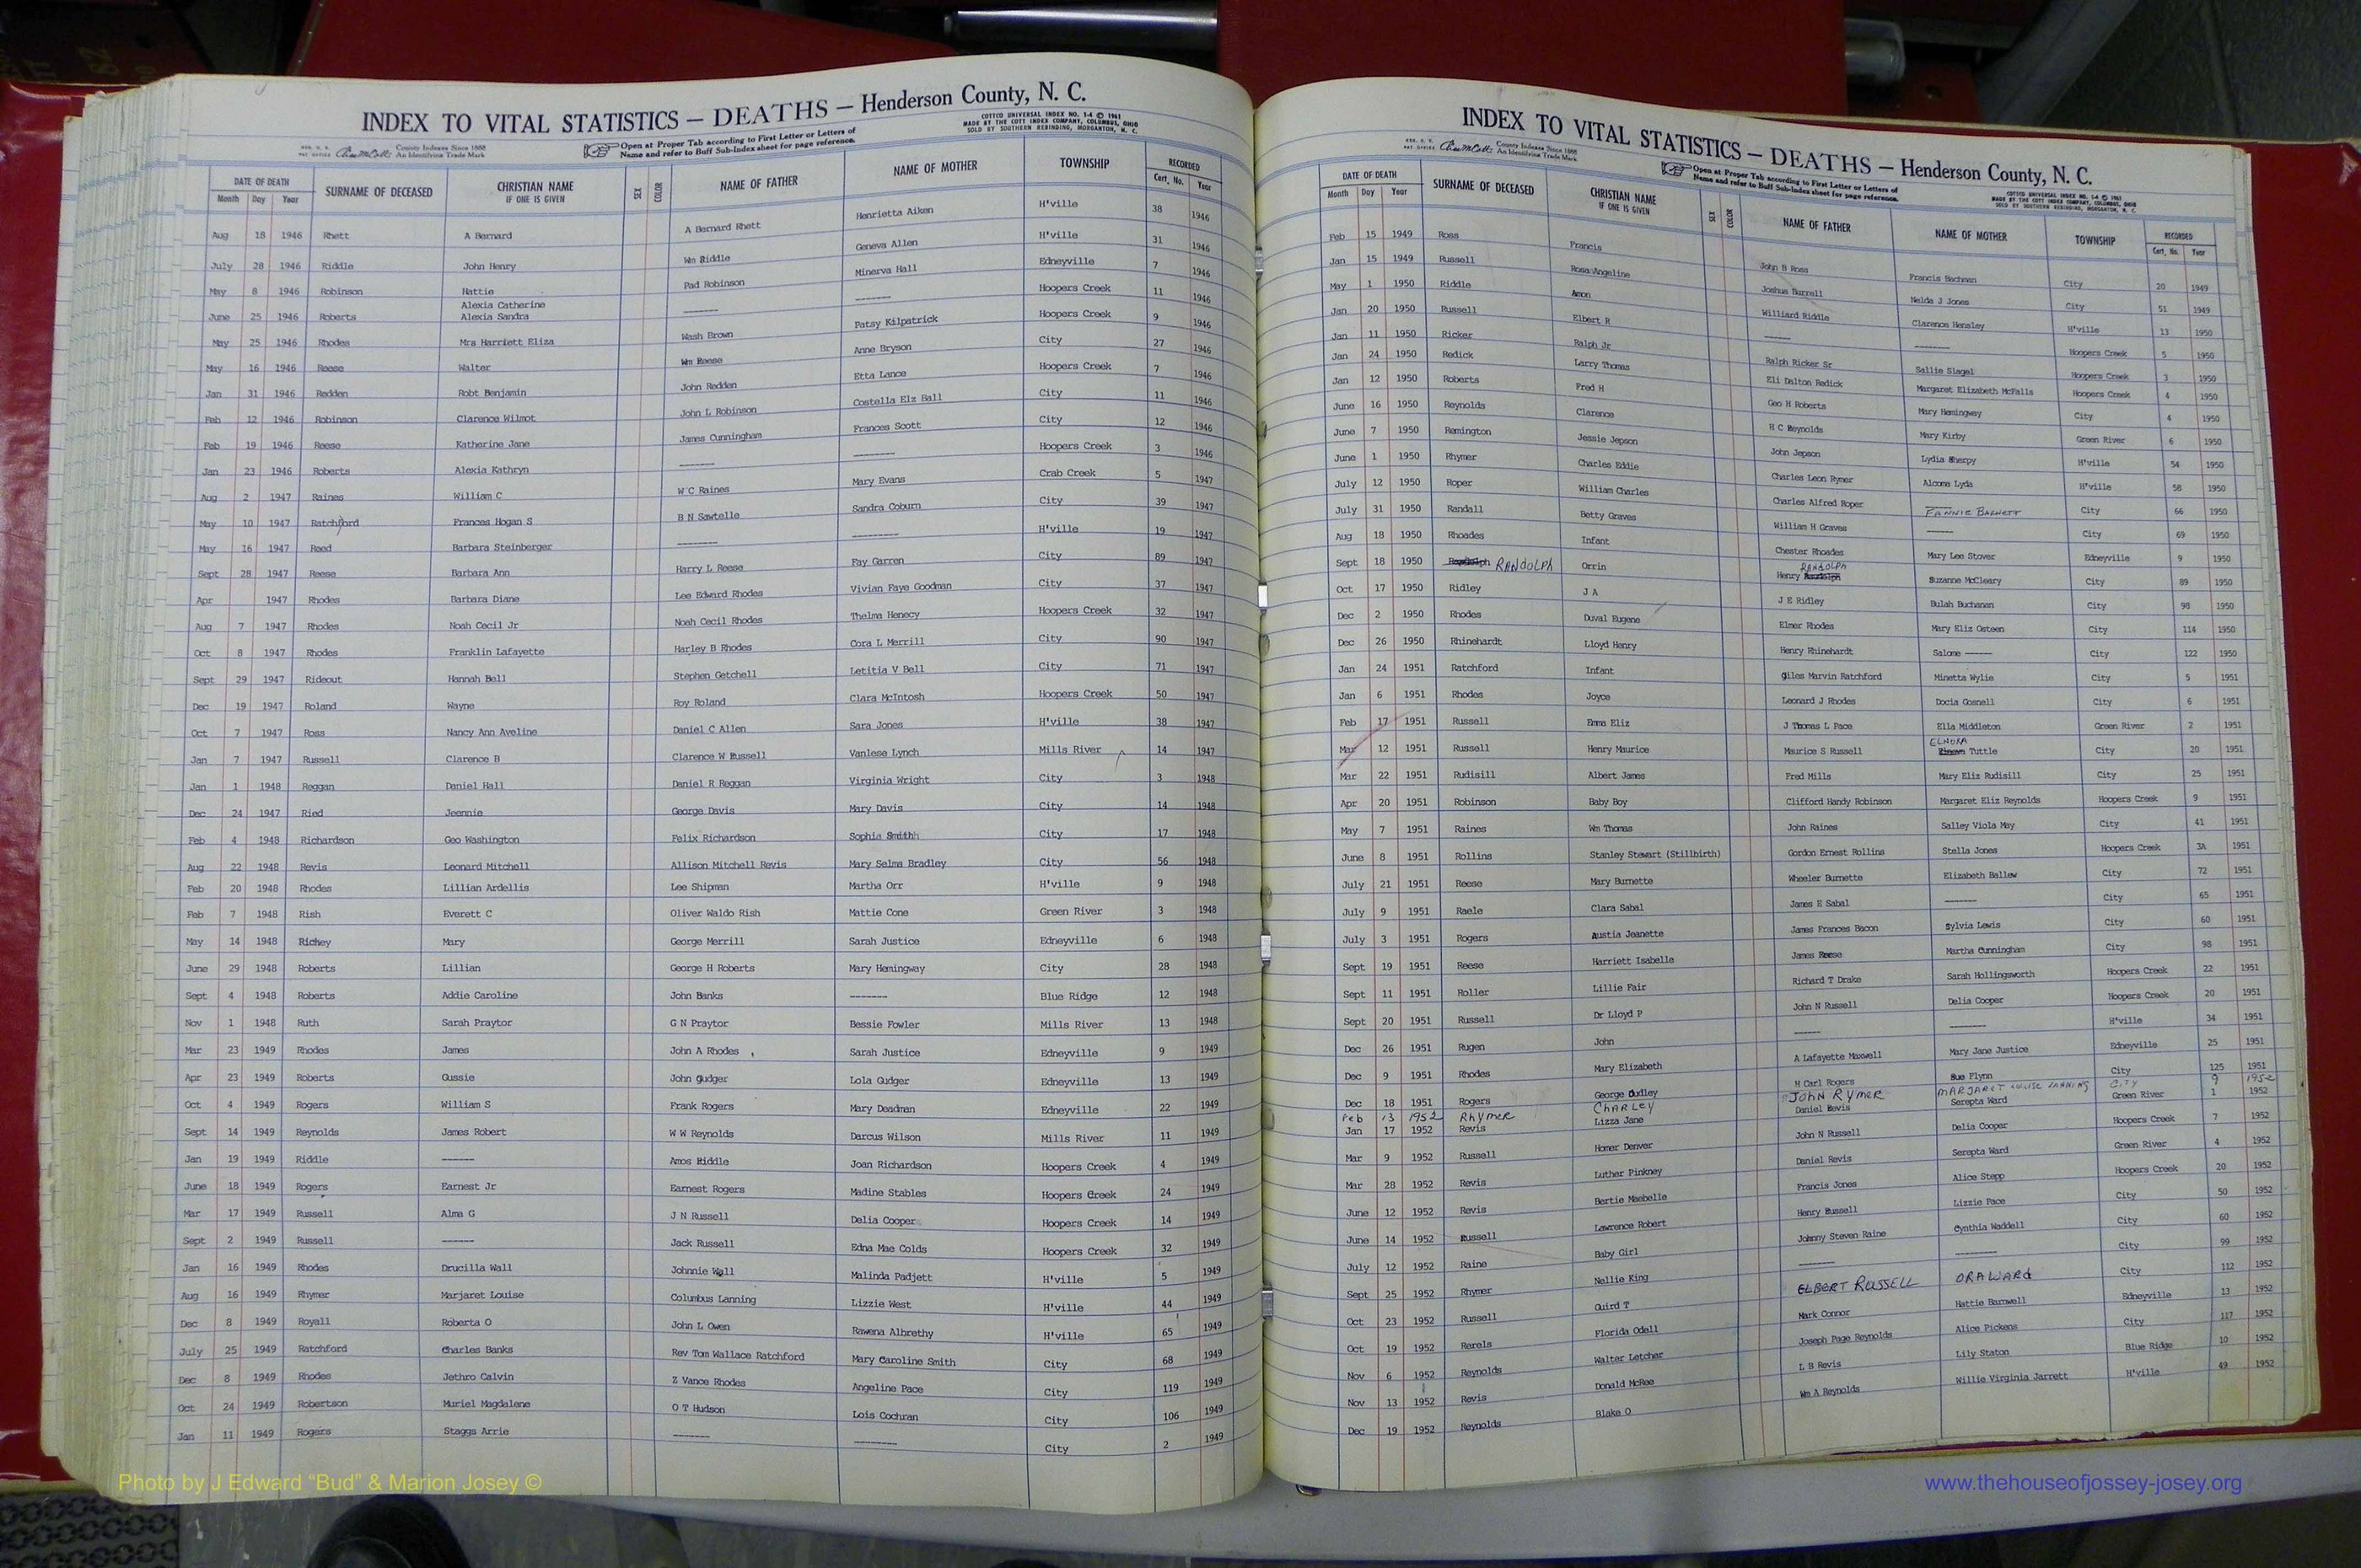 INDEX TO VITAL STATISTICS — DEATHS — Henderson County, N. C.
COTTCO UNIVERSAL INDEX NO. 1-4 © 1961
MADE BY THE COTT INDEX COMPANY, COLUMBUS, OHIO
SOLD BY SOUTHERN REBINDING, MORGANTON, N. C.
County Indexes Since 1888
An Identifying Trade Mark
Open at Proper Tab according to First Letter or Letters of
Name and refer to Buff Sub-Index sheet for page reference.
DATE OF DEATH SURNAME OF DECEASED CHRISTIAN NAME IF ONE IS GIVEN SEX COLOR NAME OF FATHER NAME OF MOTHER TOWNSHIP RECORDED
Month Day Year Cert. No. Year
Aug 18 1946 Rhett A Bernard A Bernard Rhett Henrietta Aiken H'ville 38 1946
July 28 1946 Riddle John Henry Wm Riddle Geneva Allen H'ville 31 1946
May 8 1946 Robinson Hattie Pad Robinson Minerva Hall Edneyville 7 1946
Alexia Catherine
June 25 1946 Roberts Alexia Sandra ------- ------- Hoopers Creek 11 1946
May 25 1946 Rhodes Mrs Harriett Eliza Wash Brown Patsy Kilpatrick Hoopers Creek 9 1946
May 16 1946 Reese Walter Wm Reese Anne Bryson City 27 1946
Jan 31 1946 Redden Robt Benjamin John Redden Etta Lance Hoopers Creek 7 1946
Feb 12 1946 Robinson Clarence Wilmot John L Robinson Costella Elz Ball City 11 1946
Feb 19 1946 Reese Katherine Jane James Cunningham Frances Scott City 12 1946
Jan 23 1946 Roberts Alexia Kathryn ------- ------- Hoopers Creek 3 1946
Aug 2 1947 Raines William C W C Raines Mary Evans Crab Creek 5 1947
May 10 1947 Ratchford Frances Hogan S B N Sawtelle Sandra Coburn City 39 1947
May 16 1947 Reed Barbara Steinberger ------- ------- H'ville 19 1947
Sept 28 1947 Reese Barbara Ann Harry L Reese Fay Garren City 89 1947
Apr 1947 Rhodes Barbara Diane Lee Edward Rhodes Vivian Faye Goodman City 37 1947
Aug 7 1947 Rhodes Noah Cecil Jr Noah Cecil Rhodes Thelma Henecy Hoopers Creek 32 1947
Oct 8 1947 Rhodes Franklin Lafayette Harley B Rhodes Cora L Merrill City 90 1947
Sept 29 1947 Rideout Hannah Bell Stephen Getchell Letitia V Bell City 71 1947
Dec 19 1947 Roland Wayne Roy Roland Clara McIntosh Hoopers Creek 50 1947
Oct 7 1947 Ross Nancy Ann Aveline Daniel C Allen Sara Jones H'ville 38 1947
Jan 7 1947 Russell Clarence B Clarence W Russell Vanlese Lynch Mills River 14 1947
Jan 1 1948 Reggan Daniel Hall Daniel R Reggan Virginia Wright City 3 1948
Dec 24 1947 Ried Jeennie George Davis Mary Davis City 14 1948
Feb 4 1948 Richardson Geo Washington Felix Richardson Sophia Smithh City 17 1948
Aug 22 1948 Revis Leonard Mitchell Allison Mitchell Revis Mary Selma Bradley City 56 1948
Feb 20 1948 Rhodes Lillian Ardellis Lee Shipman Martha Orr H'ville 9 1948
Feb 7 1948 Rish Everett C Oliver Waldo Rish Mattie Cone Green River 3 1948
May 14 1948 Richey Mary George Merrill Sarah Justice Edneyville 6 1948
June 29 1948 Roberts Lillian George H Roberts Mary Hemingway City 28 1948
Sept 4 1948 Roberts Addie Caroline John Banks ------- Blue Ridge 12 1948
Nov 1 1948 Ruth Sarah Praytor G N Praytor Bessie Fowler Mills River 13 1948
Mar 23 1949 Rhodes James John A Rhodes Sarah Justice Edneyville 9 1949
Apr 23 1949 Roberts Gussie John Gudger Lola Gudger Edneyville 13 1949
Oct 4 1949 Rogers William S Frank Rogers Mary Deadman Edneyville 22 1949
Sept 14 1949 Reynolds James Robert W W Reynolds Darcus Wilson Mills River 11 1949
Jan 19 1949 Riddle ------ Amos Riddle Joan Richardson Hoopers Creek 4 1949
June 18 1949 Rogers Earnest Jr Earnest Rogers Madine Stables Hoopers Creek 24 1949
Mar 17 1949 Russell Alma G J N Russell Delia Cooper Hoopers Creek 14 1949
Sept 2 1949 Russell ------ Jack Russell Edna Mae Colds Hoopers Creek 32 1949
Jan 16 1949 Rhodes Drucilla Wall Johnnie Wall Malinda Padjett H'ville 5 1949
Aug 16 1949 Rhymer Marjaret Louise Columbus Lanning Lizzie West H'ville 44 1949
Dec 8 1949 Royall Roberta O John L Owen Rawena Albrethy H'ville 65 1949
July 25 1949 Ratchford Charles Banks Rev Tom Wallace Ratchford Mary Caroline Smith City 68 1949
Dec 8 1949 Rhodes Jethro Calvin Z Vance Rhodes Angeline Pace City 119 1949
Oct 24 1949 Robertson Muriel Magdalene O T Hudson Lois Cochran City 106 1949
Jan 11 1949 Rogers Staggs Arrie ------- ------- City 2 1949
INDEX TO VITAL STATISTICS — DEATHS — Henderson County, N. C.
COTTCO UNIVERSAL INDEX NO. 1-4 © 1961
MADE BY THE COTT INDEX COMPANY, COLUMBUS, OHIO
SOLD BY SOUTHERN REBINDING, MORGANTON, N. C.
County Indexes Since 1888
An Identifying Trade Mark
Open at Proper Tab according to First Letter or Letters of
Name and refer to Buff Sub-Index sheet for page reference.
DATE OF DEATH SURNAME OF DECEASED CHRISTIAN NAME IF ONE IS GIVEN SEX COLOR NAME OF FATHER NAME OF MOTHER TOWNSHIP RECORDED
Month Day Year Cert. No. Year
Feb 15 1949 Ross Francis John B Ross Francis Bachman City 20 1949
Jan 15 1949 Russell Rosa Angeline Joshua Burrell Nelda J Jones City 51 1949
May 1 1950 Riddle Amon Williard Riddle Clarence Hensley H'ville 13 1950
Jan 20 1950 Russell Elbert R ------ ------- Hoopers Creek 5 1950
Jan 11 1950 Ricker Ralph Jr Ralph Ricker Sr Sallie Siagel Hoopers Creek 3 1950
Jan 24 1950 Redick Larry Thomas Eli Dalton Redick Margaret Elizabeth McFalls Hoopers Creek 4 1950
Jan 12 1950 Roberts Fred H Geo H Roberts Mary Hemingway City 4 1950
June 16 1950 Reynolds Clarence H C Reynolds Mary Kirby Green River 6 1950
June 7 1950 Remington Jessie Jepson John Jepson Lydia Sherpy H'ville 54 1950
June 1 1950 Rhymer Charles Eddie Charles Leon Rymer Alcoma Lyda H'ville 58 1950
July 12 1950 Roper William Charles Charles Alfred Roper FANNIE BARNETT City 66 1950
July 31 1950 Randall Betty Graves William H Graves ------ City 69 1950
Aug 18 1950 Rhoades Infant Chester Rhoades Mary Lee Stover Edneyville 9 1950
Sept 18 1950 RANDOLPH Orrin Henry RANDOLPH Suzanne McCleary City 89 1950
Oct 17 1950 Ridley J A J E Ridley Bulah Buchanan City 98 1950
Dec 2 1950 Rhodes Duval Eugene Elmer Rhodes Mary Eliz Osteen City 114 1950
Dec 26 1950 Rhinehardt Lloyd Henry Henry Rhinehardt Salome ------ City 122 1950
Jan 24 1951 Ratchford Infant Giles Marvin Ratchford Minetta Wylie City 5 1951
Jan 6 1951 Rhodes Joyce Leonard J Rhodes Docia Gosnell City 6 1951
Feb 17 1951 Russell Emma Eliz J Thomas L Pace Ella Middleton Green River 2 1951
Mar 12 1951 Russell Henry Maurice Maurice S Russell ELNORA Tuttle City 20 1951
Mar 22 1951 Rudisill Albert James Fred Mills Mary Eliz Rudisill City 25 1951
Apr 20 1951 Robinson Baby Boy Clifford Handy Robinson Margaret Eliz Reynolds Hoopers Creek 9 1951
May 7 1951 Raines Wm Thomas John Raines Salley Viola May City 41 1951
June 8 1951 Rollins Stanley Stewart (Stillbirth) Gordon Ernest Rollins Stella Jones Hoopers Creek 3A 1951
July 21 1951 Reese Mary Burnette Wheeler Burnette Elizabeth Ballew City 72 1951
July 9 1951 Raele Clara Sabal James E Sabal ------- City 65 1951
July 3 1951 Rogers Austia Jeanette James Frances Bacon Sylvia Lewis City 60 1951
Sept 19 1951 Reese Harriett Isabelle James Reese Martha Cunningham City 98 1951
Sept 11 1951 Roller Lillie Fair Richard T Drake Sarah Hollingsworth Hoopers Creek 22 1951
Sept 20 1951 Russell Dr Lloyd P John N Russell Delia Cooper Hoopers Creek 20 1951
Dec 26 1951 Rugen John ------ ------- H'ville 34 1951
Dec 9 1951 Rhodes Mary Elizabeth A Lafayette Maxwell Mary Jane Justice Edneyville 25 1951
Dec 18 1951 Rogers George Dudley H Carl Rogers Sue Flynn City 125 1951
Feb 13 1952 Rhymer CHARLEY JOHN RYMER MARJARET LOUISE LANNING CITY 9 1952
Jan 17 1952 Revis Lizza Jane Daniel Revis Serepta Ward Green River 1 1952
Mar 9 1952 Russell Homer Denver John N Russell Delia Cooper Hoopers Creek 7 1952
Mar 28 1952 Revis Luther Pinkney Daniel Revis Serepta Ward Green River 4 1952
June 12 1952 Revis Bertie Maebelle Francis Jones Alice Stepp Hoopers Creek 20 1952
June 14 1952 Russell Lawrence Robert Henry Russell Lizzie Pace City 50 1952
July 12 1952 Raine Baby Girl Johnny Steven Raine Cynthia Waddell City 60 1952
Sept 25 1952 Rhymer Nellie King ------- ------- City 99 1952
Oct 23 1952 Russell Guird T ELBERT RUSSELL ORA WARD City 112 1952
Oct 19 1952 Rerels Florida Odell Mark Connor Hattie Barnwell Edneyville 13 1952
Nov 6 1952 Reynolds Walter Letcher Joseph Page Reynolds Alice Pickens City 117 1952
Nov 13 1952 Revis Donald McRee L B Revis Lily Staton Blue Ridge 10 1952
Dec 19 1952 Reynolds Blake O Wm A Reynolds Willie Virginia Jarrett H'ville 49 1952
Photo by J Edward "Bud" & Marion Josey ©
www.thehouseofjossey-josey.org